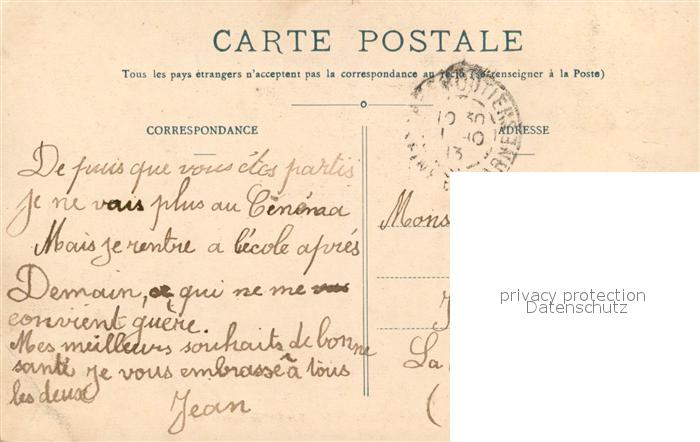 CARTE POSTALE
Tous les pays étrangers n'acceptent pas la correspondance au recto (Se renseigner à la Poste)
CORRESPONDANCE
ADRESSE
Depuis que vous êtes partis
je ne vais plus au Cénéma
Mais je rentre a l'école aprés
Demain, ce qui ne me
convient guère.
Mes meilleurs souhaits de bonne
santé je vous embrasse à tous
les deux
Jean
Mons
La
(
privacy protection
Datenschutz